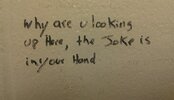 Why are u looking
up Here, the Joke is
in your Hand